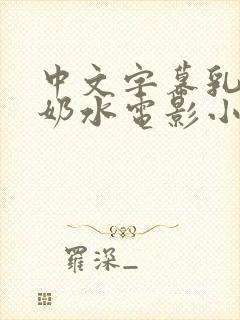 中文字幕乳
奶水电影小
罗深_